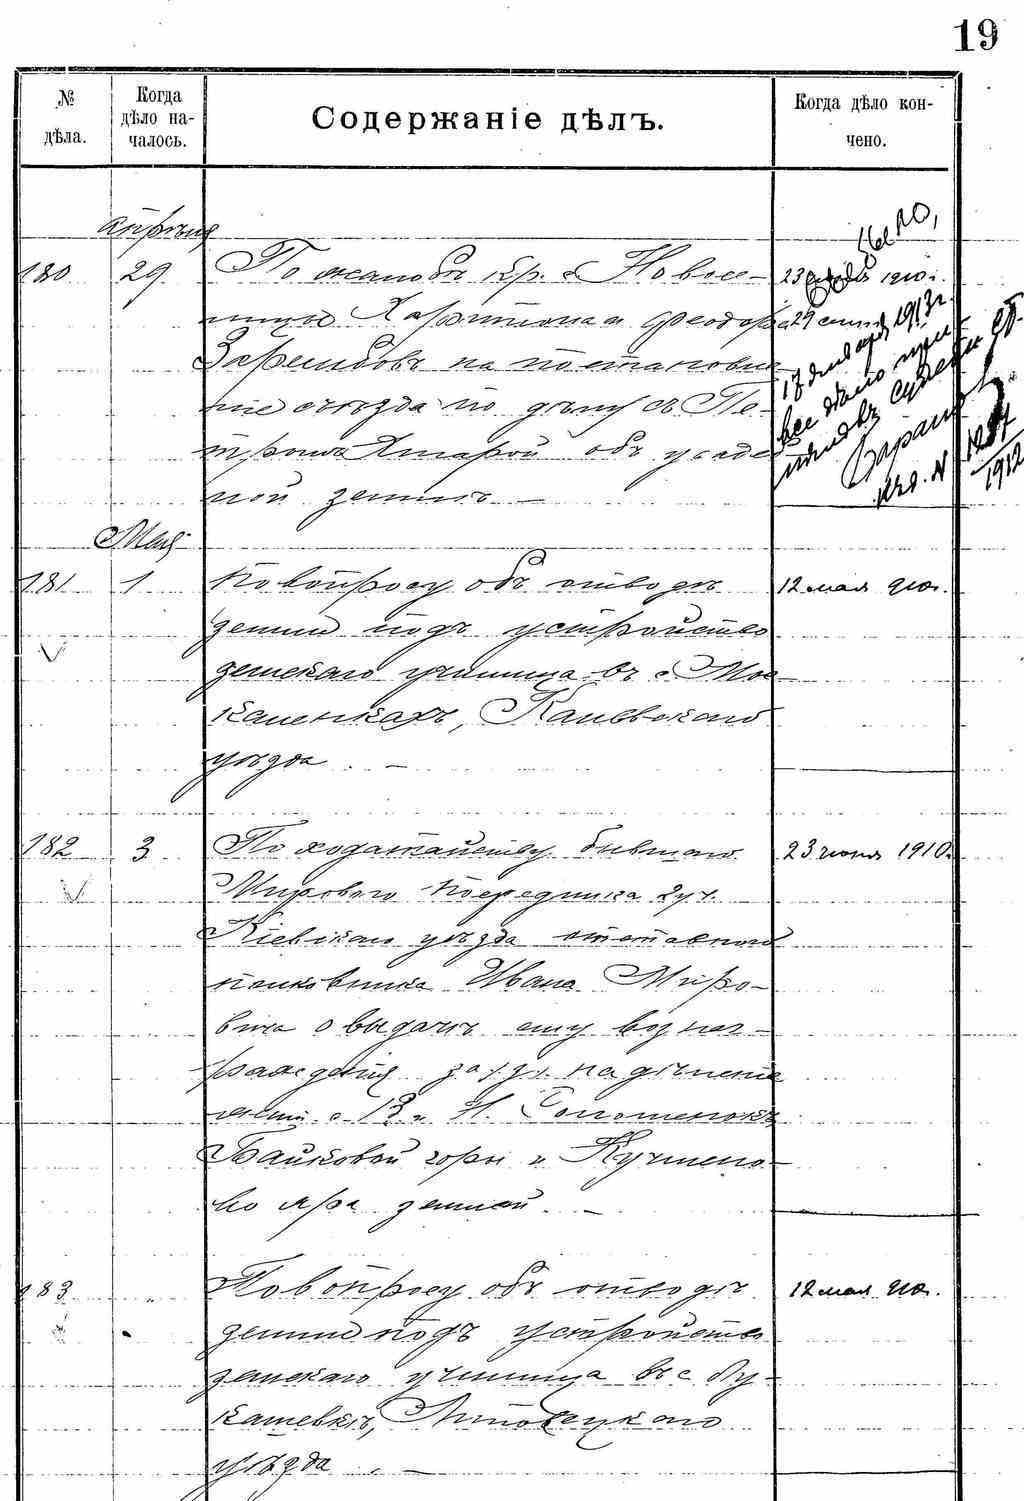 19
№ дѣла.
Когда дѣло на-
чалось.
Содержаніе дѣлъ.
Когда дѣло кон-
чено.
Апрѣля
180 29 По жалобѣ кр. с. Новосе-
лицы Харитона и Феодора
на постановле-
ніе съѣзда по дѣлу съ Пе-
тромъ объ усадеб
ной землѣ —
23 1910 г.
29
17 января 1913 г.
все дѣло
1912
Мая
181 1 По вопросу объ отводѣ
земли подъ устройство
земскаго училища въ с. Мос-
каленкахъ, Каневскаго
уѣзда. —
12 мая 910 г.
182 3 По ходатайству бывшаго
Мирового посредника 2 уч.
Кіевскаго уѣзда отставного
полковника Ивана Миро-
вича о выдачѣ ему вознаг-
ражденія за надѣленіе
Байковой горы и Кучмено-
во яра землей. —
23 іюня 1910 г.
183 „ По вопросу объ отводѣ
земли подъ устройство
земскаго училища въ с. Лу-
кашевкѣ, Липовецкаго
уѣзда. —
12 мая 910 г.